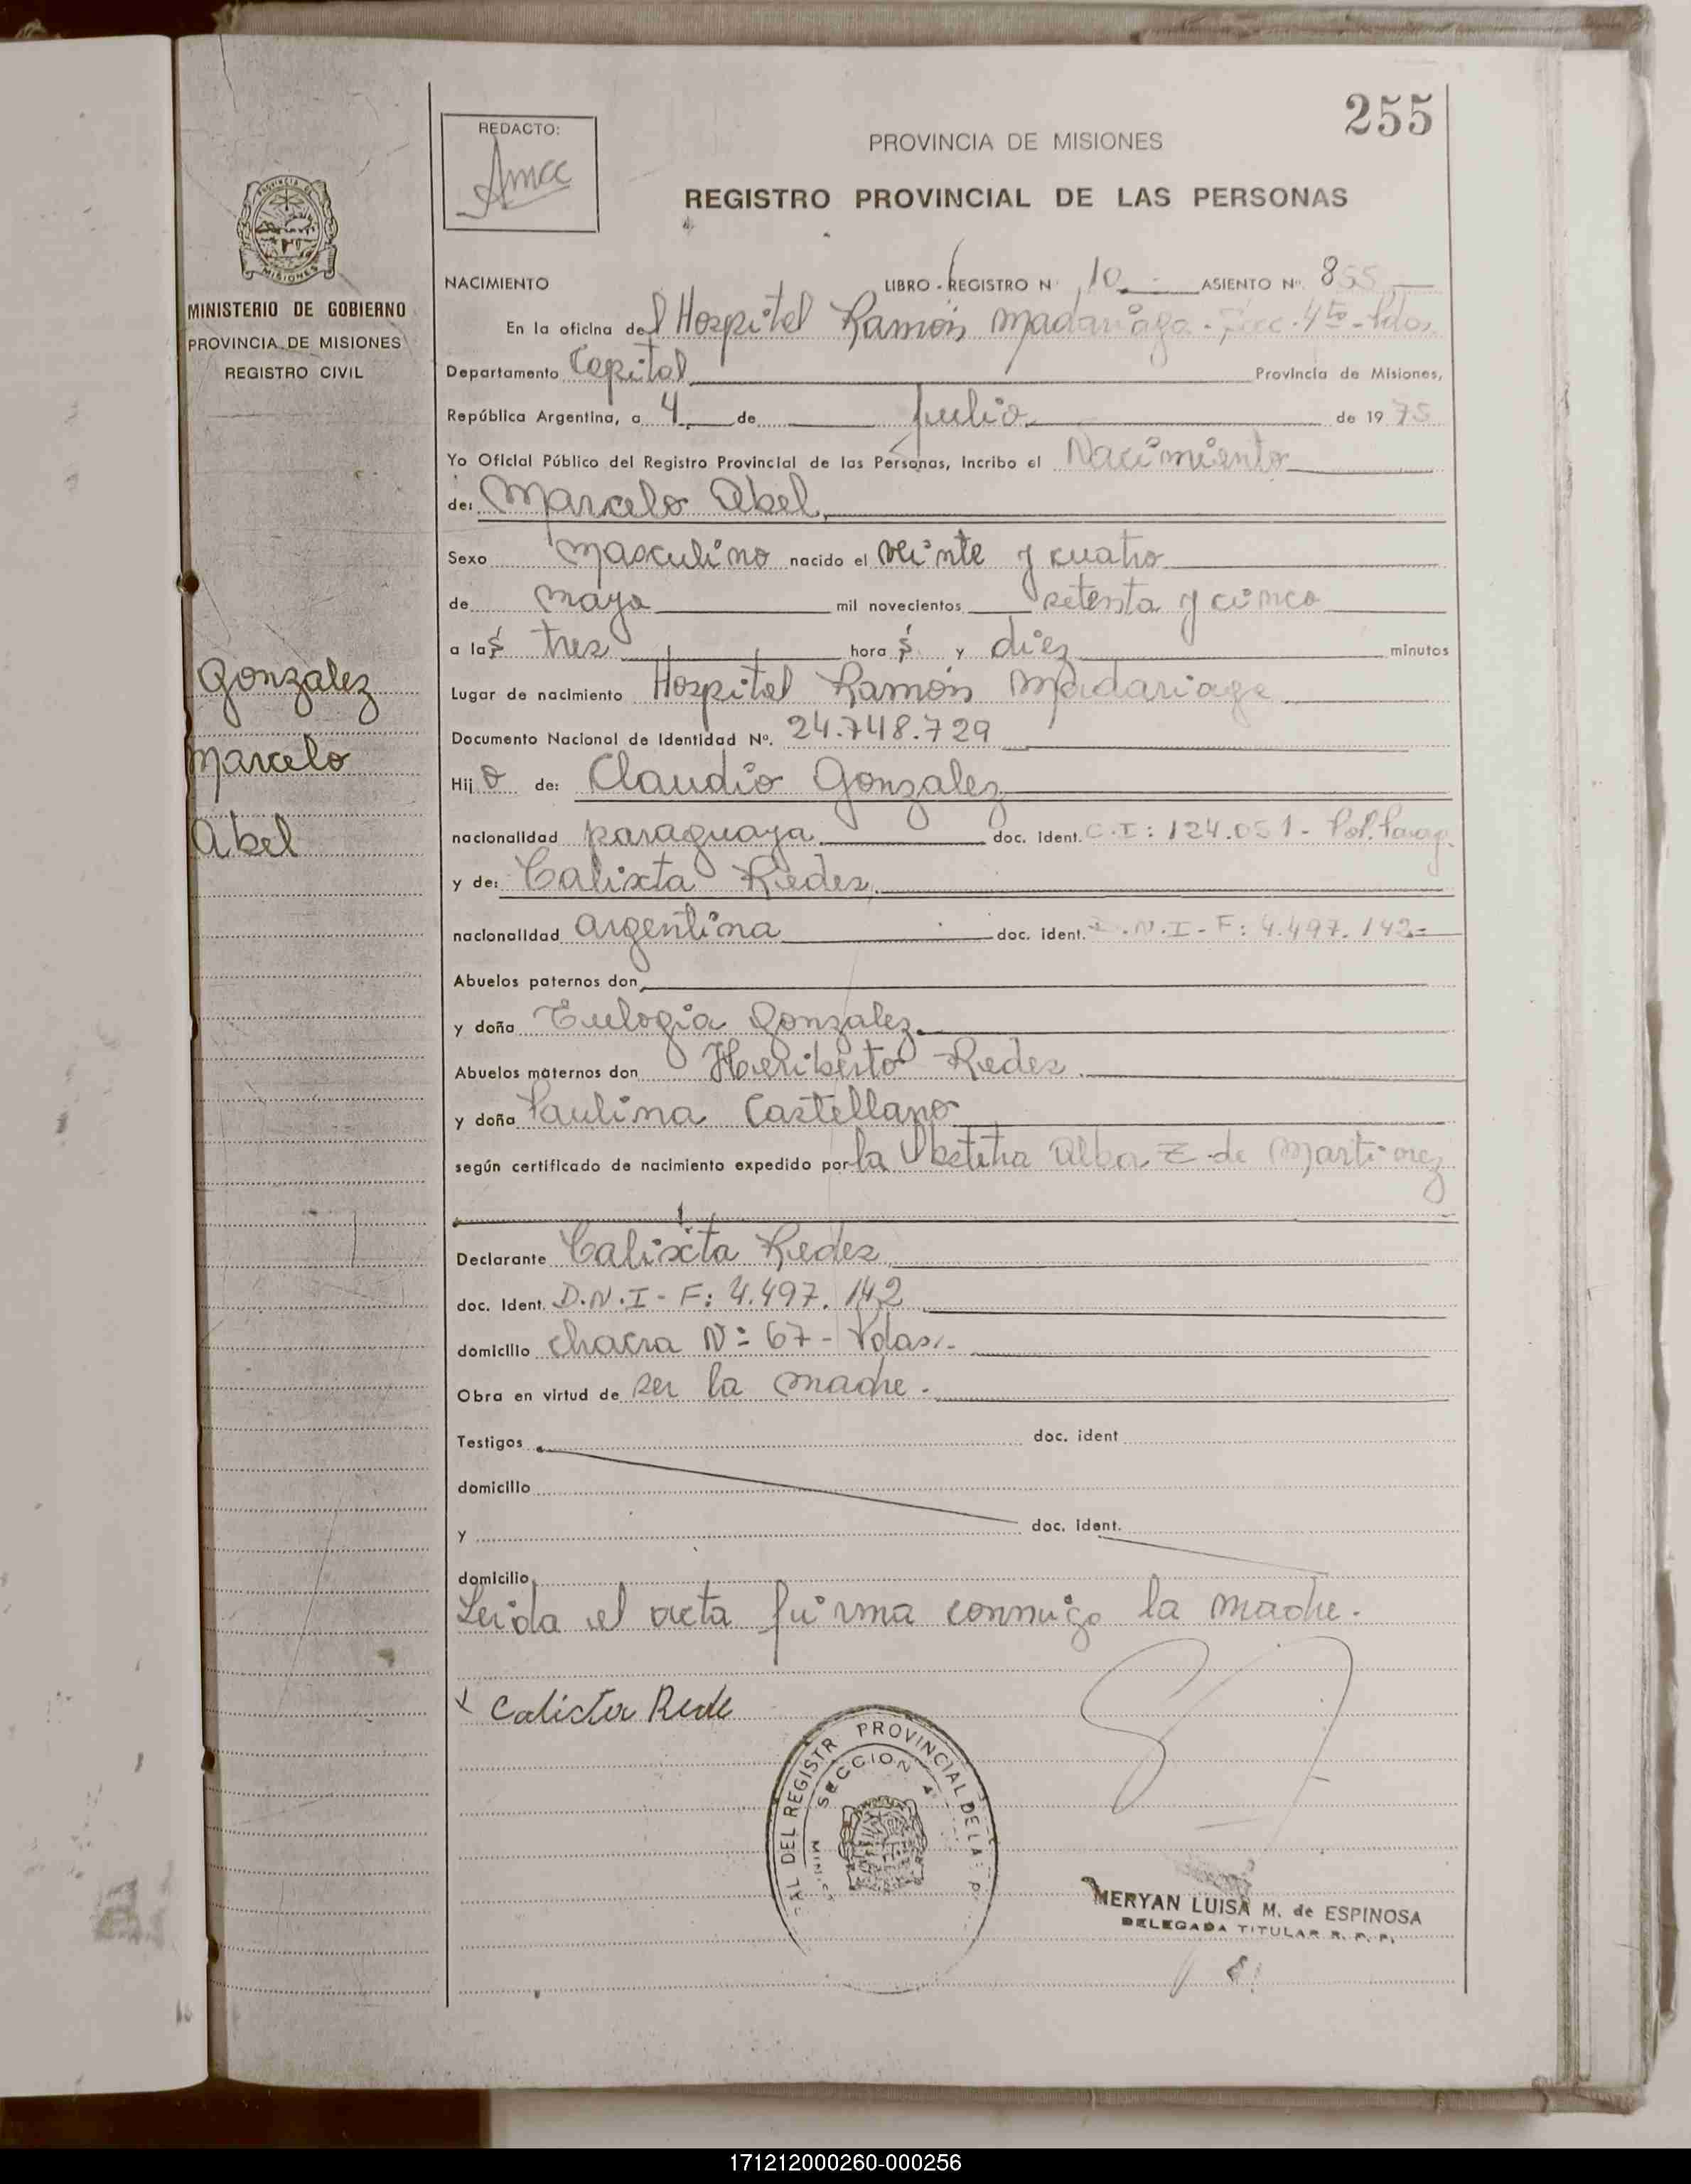 255
REDACTO:
Amcc
PROVINCIA DE MISIONES
REGISTRO PROVINCIAL DE LAS PERSONAS
MINISTERIO DE GOBIERNO
PROVINCIA DE MISIONES
REGISTRO CIVIL
NACIMIENTO LIBRO - REGISTRO Nº 10 ASIENTO Nº 855
En la oficina del Hospital Ramón Madariaga - Secc. 4to - Pdas
Departamento Capital Provincia de Misiones,
República Argentina, a 4 de Julio de 1975
Yo Oficial Público del Registro Provincial de las Personas, Incribo el Nacimiento
de: Marcelo Abel
Sexo masculino nacido el veinte y cuatro
de mayo mil novecientos setenta y cinco
a las tres horas y diez minutos
Gonzalez
Lugar de nacimiento Hospital Ramón Madariaga
Documento Nacional de Identidad Nº. 24.748.729
Marcelo
Hijo de: Claudio Gonzalez
Abel
nacionalidad paraguaya doc. ident. C.I: 124.051 - Pol. Parag.
y de: Calixta Redez
nacionalidad argentina doc. ident. D.N.I - F: 4.497.142
Abuelos paternos don
y doña Eulogia Gonzalez
Abuelos maternos don Heriberto Redez
y doña Paulina Castellano
según certificado de nacimiento expedido por la Obstetra Alba Z de Martinez
Declarante Calixta Redez
doc. Ident. D.N.I - F: 4.497.142
domicilio chacra Nº 67 - Pdas.
Obra en virtud de ser la madre.
Testigos doc. ident
domicilio
y doc. ident.
domicilio
Leida el acta firma conmigo la madre.
x Calista Rede
PROVINCIAL DE LA
SECCION 4
DEL REGISTR
MERYAN LUISA M. de ESPINOSA
DELEGADA TITULAR R. P. P.
171212000260-000256